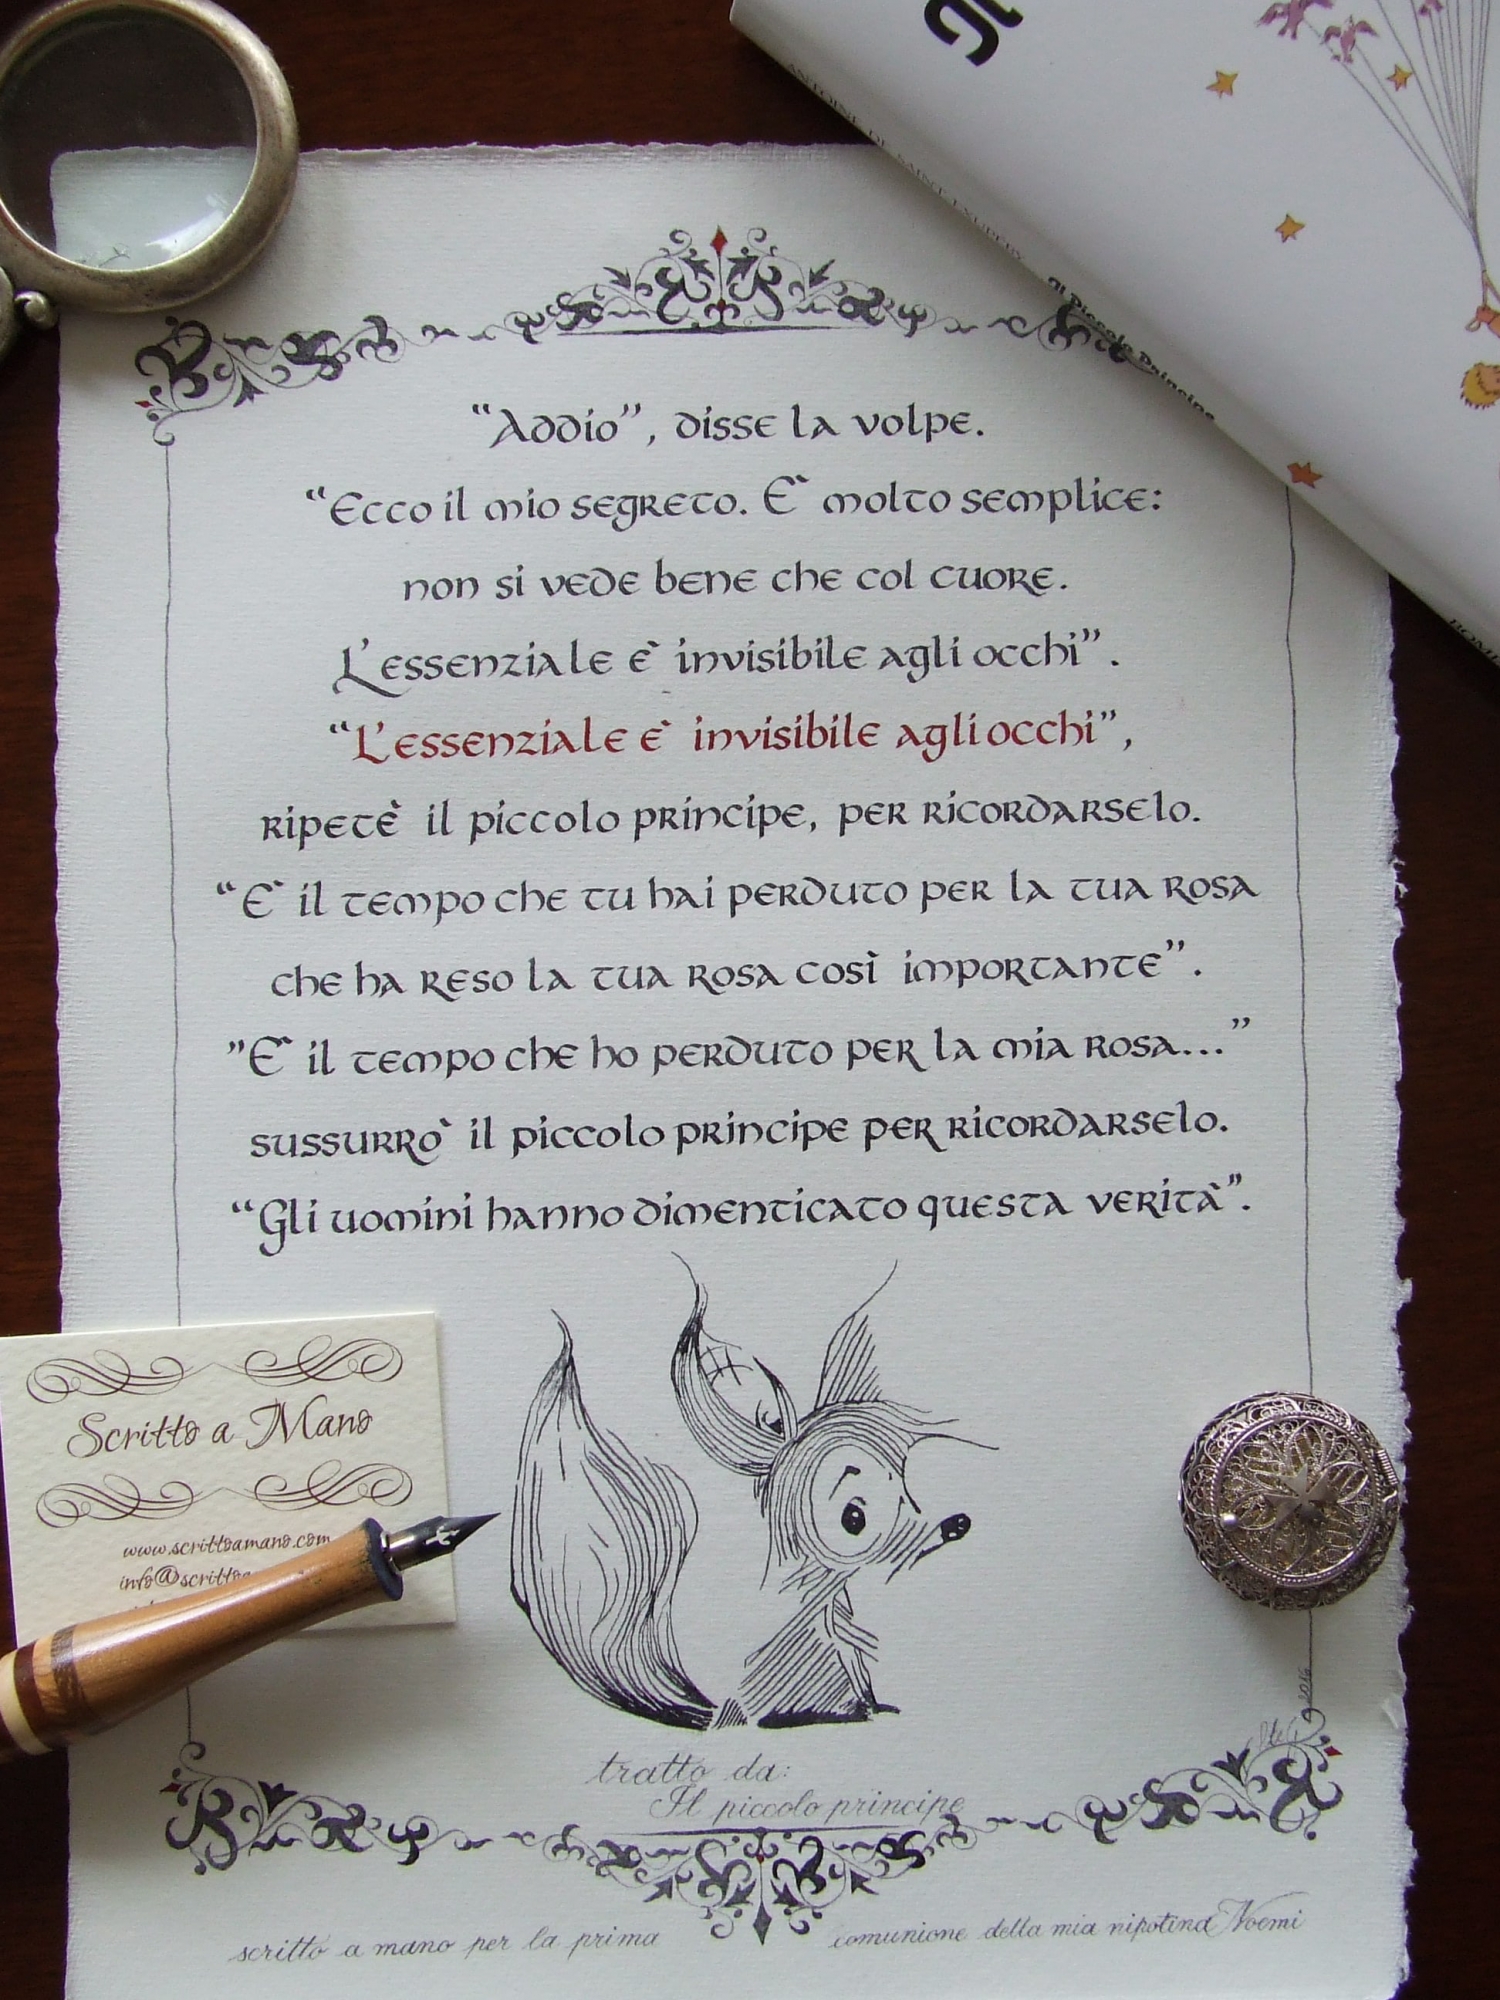 Il
ANTOINE DE SAINT-EXUPÉRY
Il Piccolo Principe
“Addio”, disse la volpe.
“Ecco il mio segreto. E` molto semplice:
non si vede bene che col cuore.
L'essenziale e` invisibile agli occhi”.
“L'essenziale e` invisibile agli occhi”,
ripetè il piccolo principe, per ricordarselo.
“E` il tempo che tu hai perduto per la tua rosa
che ha reso la tua rosa così importante”.
”E` il tempo che ho perduto per la mia rosa...”
sussurro` il piccolo principe per ricordarselo.
“Gli uomini hanno dimenticato questa verità”.
Scritto a Mano
www.scrittoamano.com
info@scrittoa
2016
tratto da:
Il piccolo principe
scritto a mano per la prima comunione della mia nipotina Noemi